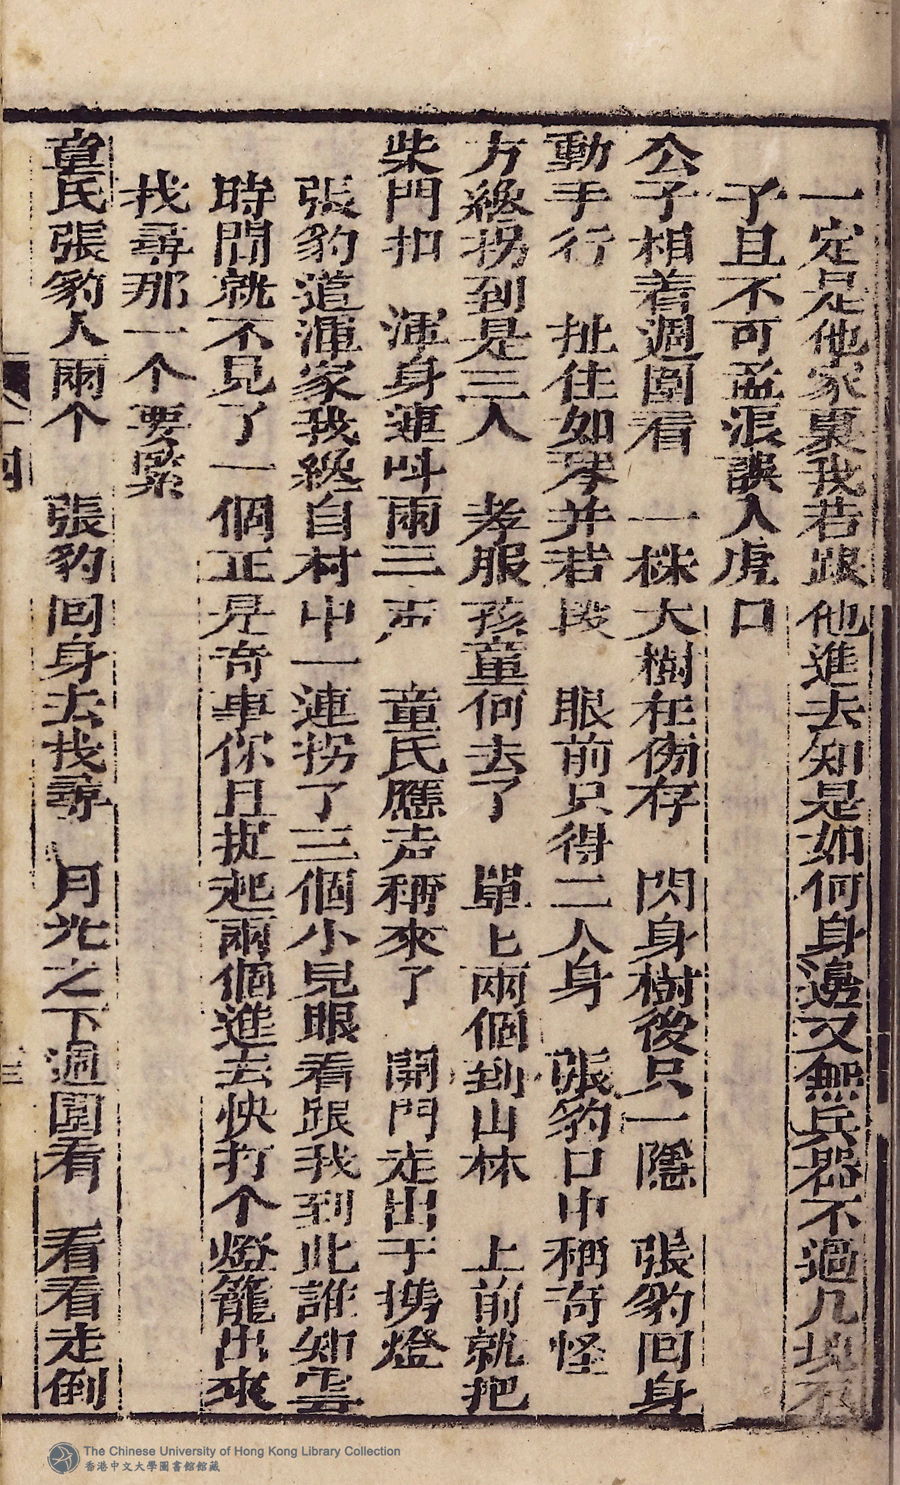 一定是他家裏我若跟他進去知是如何身邊又無兵器不過几塊石
子且不可孟浪誤入虎口
公子相着週圍看　一株大樹在傍存　閃身樹後只一隱　張豹回身
動手行　扯住如琴并若段　眼前只得二人身　張豹口中稱奇怪
方纔拐到是三人　孝服孩童何去了　單匕兩個到山林　上前就把
柴門扣　渾身連呌兩三声　童氏應声稱來了　開門走出于携燈
張豹道渾家我纔自村中一連拐了三個小児眼看跟我到此誰知霎
時間就不見了一個正是奇事你且捉起兩個進去快打个燈籠出來
找尋那一个要緊
童氏張豹人兩个　張豹回身去找尋　月光之下週圍看　看看走倒
四
三
The Chinese University of Hong Kong Library Collection
香港中文大學圖書館館藏